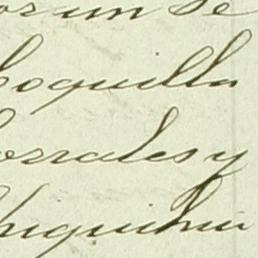 or un se
oquilla
orrales y
hiquihui